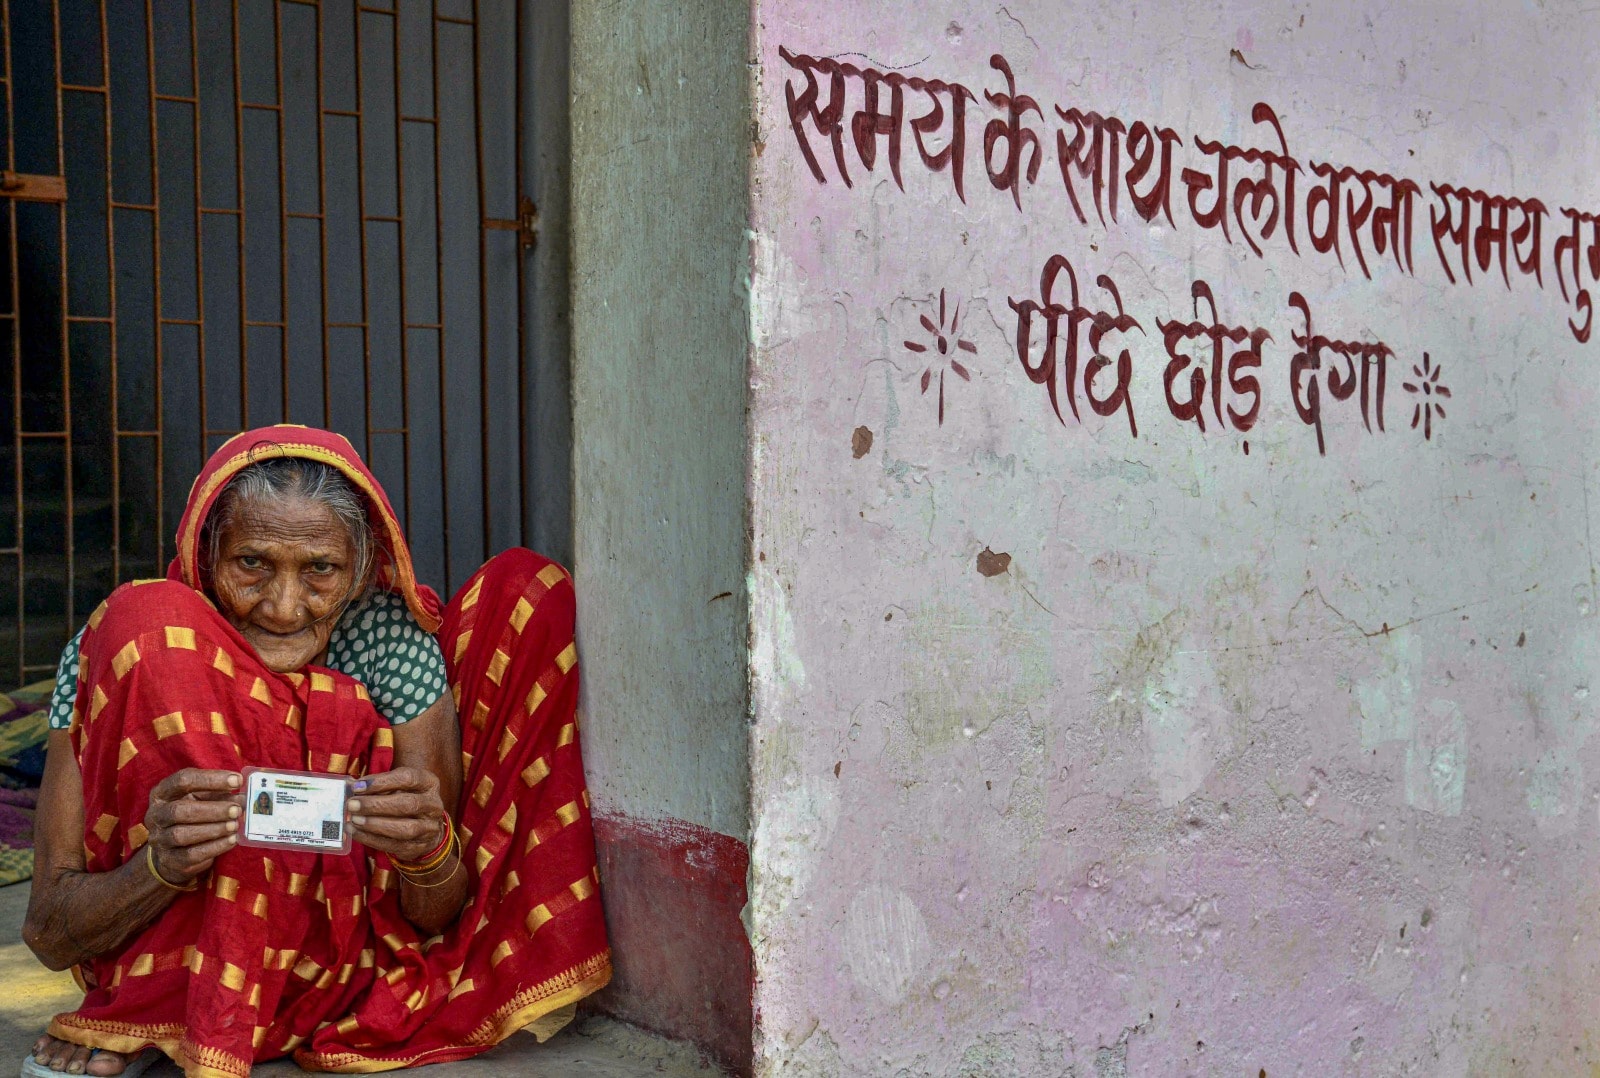 समय के साथ चलो वरना समय तुम
पीछे छोड़ देगा